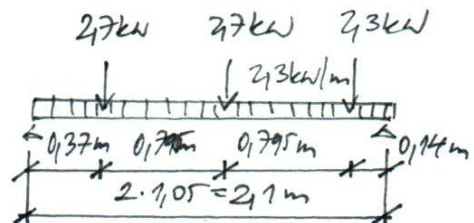 2,7kW 2,7kW 2,3kW
2,3kW/m
0,37m 0,795m 0,795m 0,14m
2·1,05=2,1m